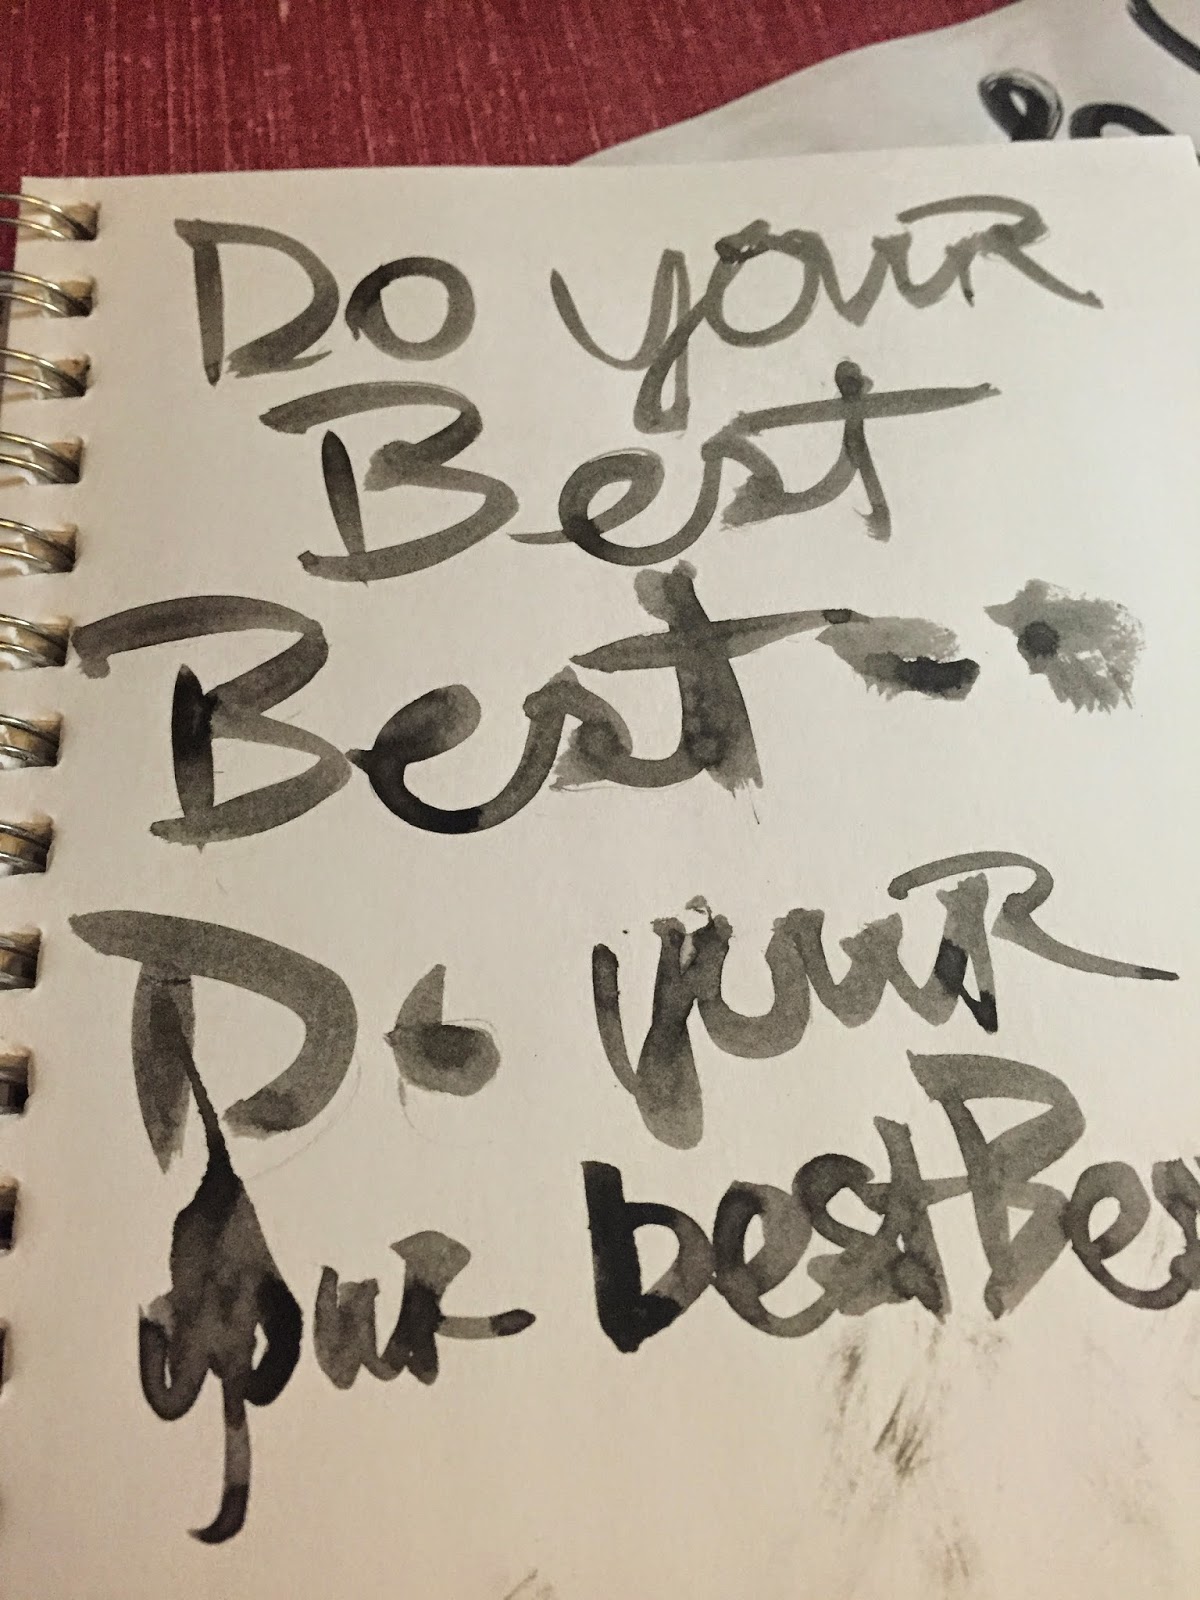 Do youR
Best
Best
Do youR
best Bes
your